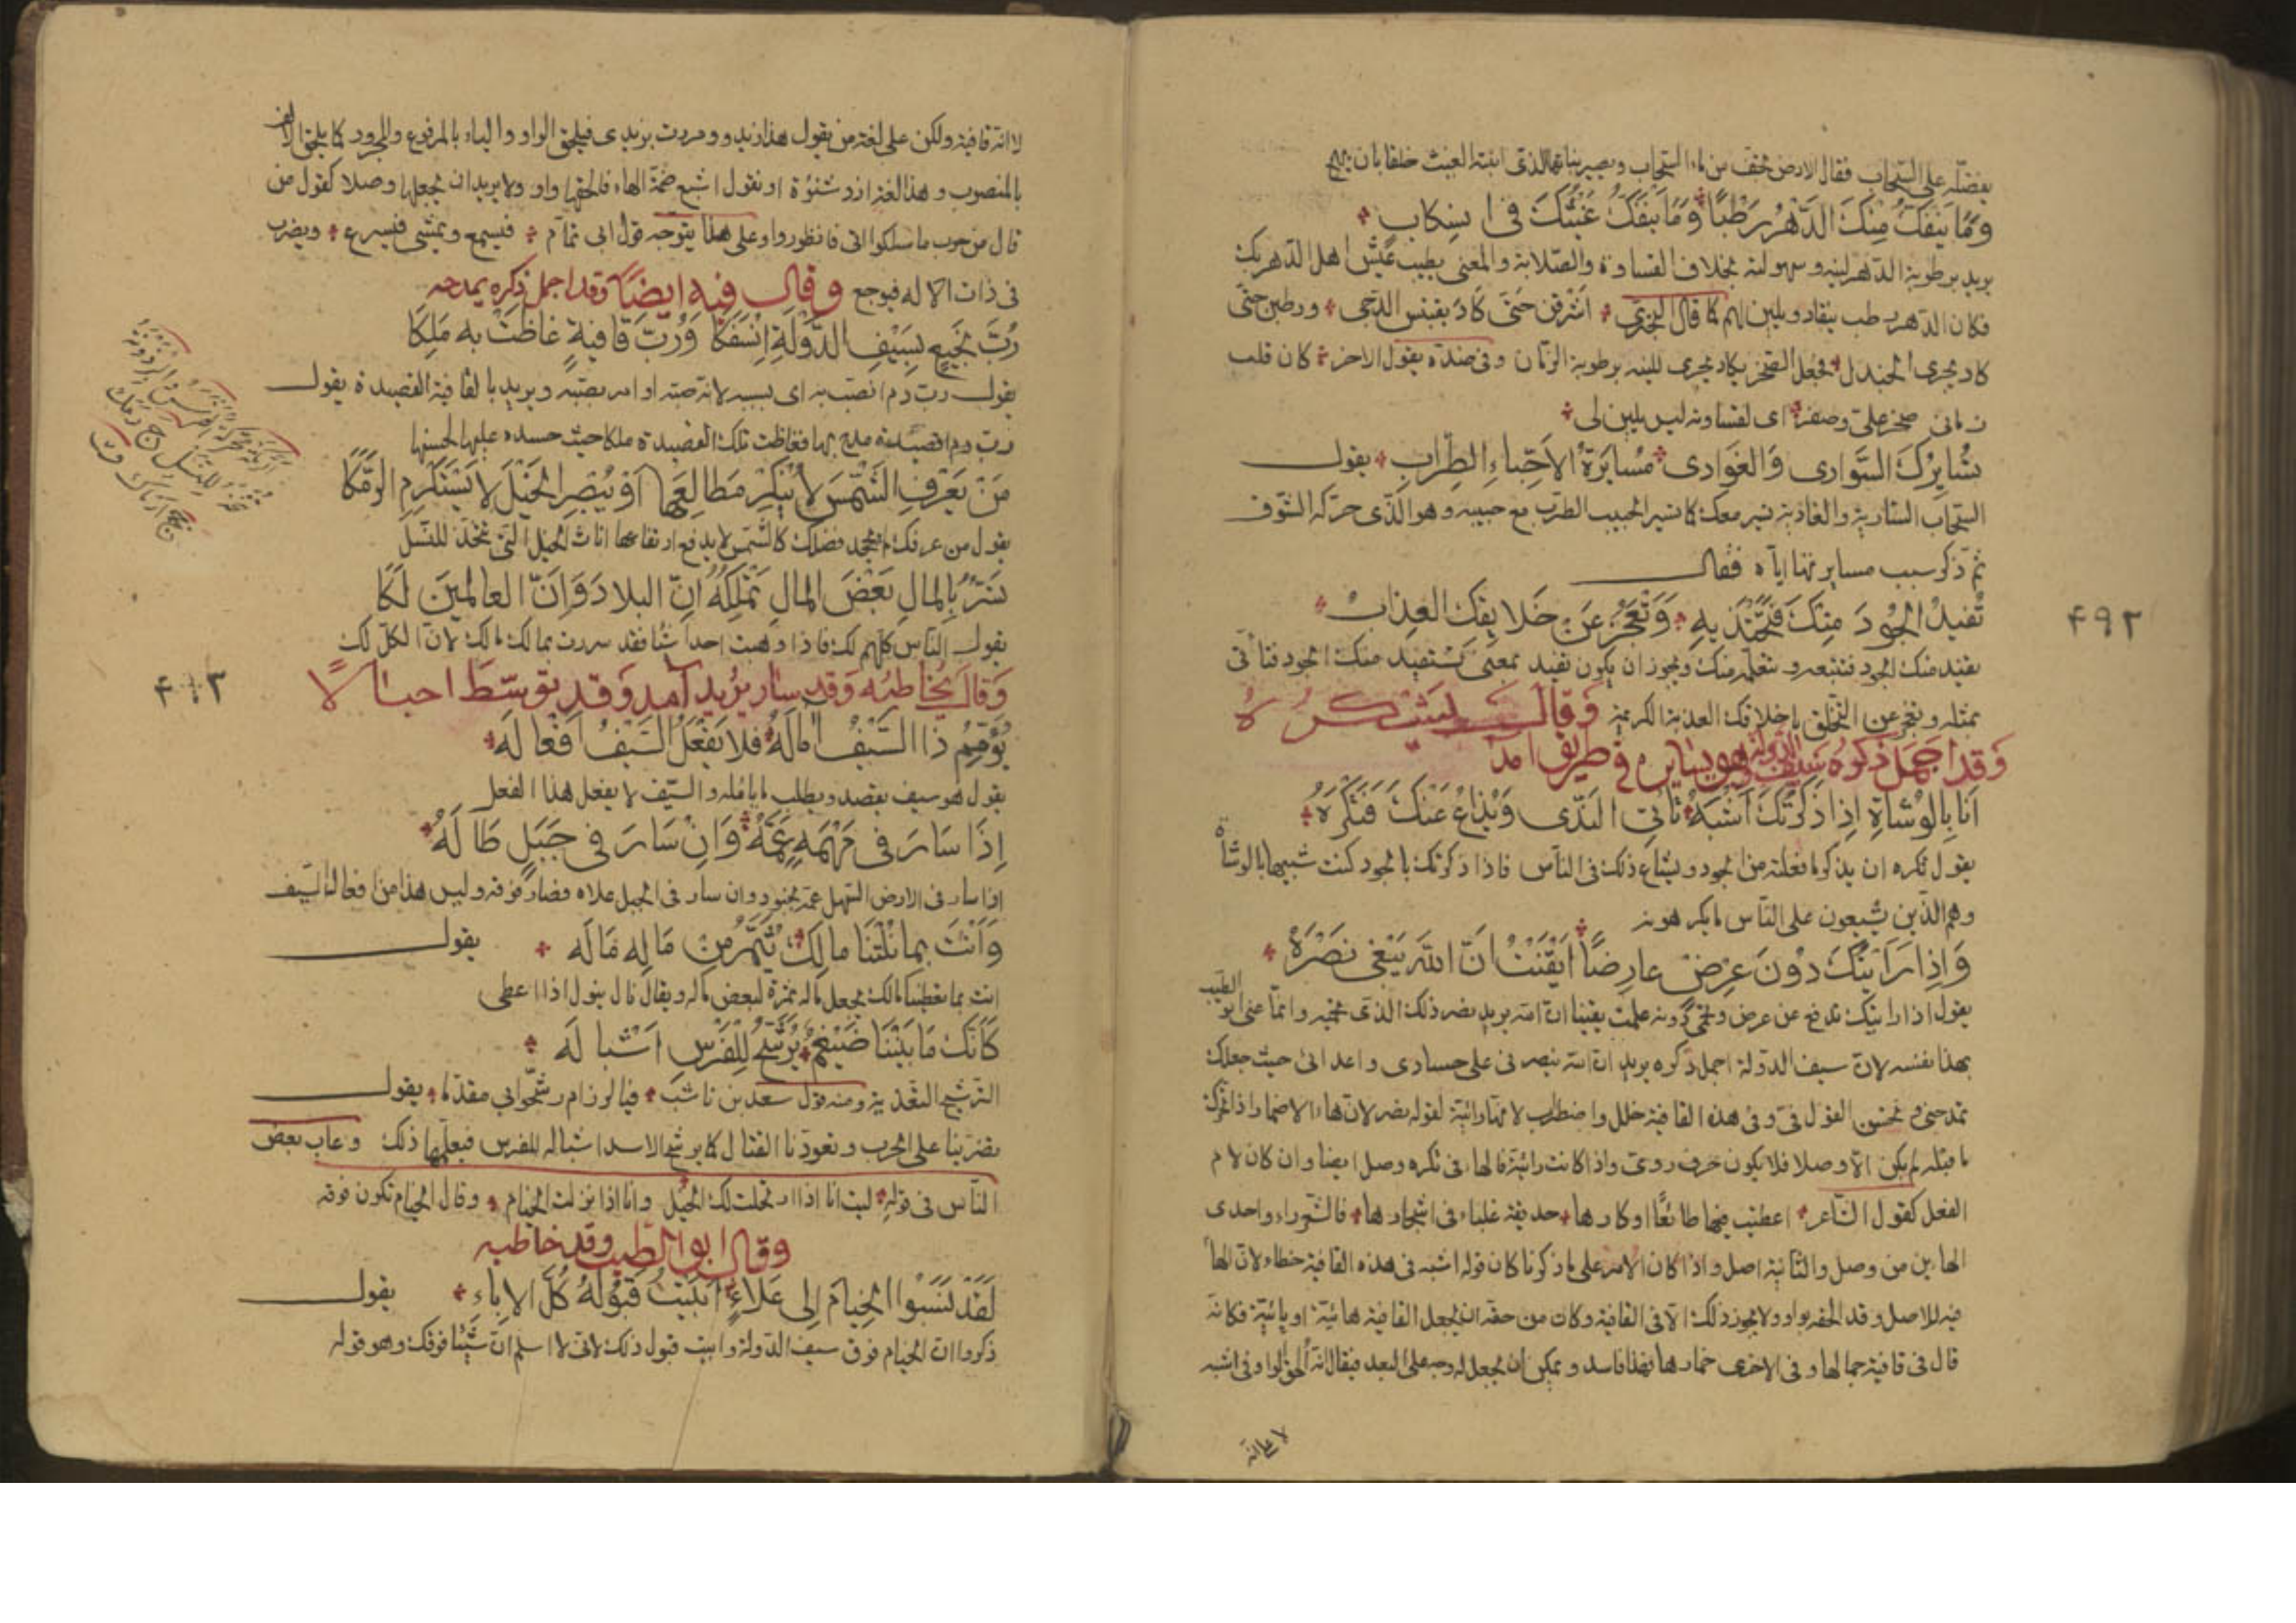 يفضله على السحاب فقال الارض تجف من ماء السحاب ويصير نباتها الذى انبته الغيث خلقا بان يهيج
وَمَا يَنْفَكُّ مِنْكَ الدَّهْرُ رَطْبًا وَمَا يَنْفَكُّ غَيْثُكَ فى انسِكابِ
يريد برطوبة الدّهر لينه وسهولته بخلاف القساوة والصّلابة والمعنى يطيب عيش اهل الدّهر بك
فكان الدّهر رطب ينقاد ويلين لهم كما قال البحترى اشرقن حتى كاد يقبس الدجى ورطبن حتى
كاد يجرى الجندل فجعل الصّخر يكاد يجرى للينه برطوبة الزمان وفى ضدّه يقول الاخر كان قلب
زمانى صخر علىّ وصفرا اى لقساوته ليس يلين لى
تُسَايِرُكَ السَّوارِى وَالغَوادِى مُسايَرَةَ الأَحِبّاءِ الطِرابِ يقول
السحاب السّارية والغادية تسير معك كما تسير الحبيب الطرب مع حبيبه وهو الذى حرّكه الشوق
ثم ذكر سبب مسايرتها ايّاه فقال
تُفِيدُ الجُودَ مِنْكَ فَتَحْتَذِيهِ وَتَعْجِزُ عَنْ خَلايِقِكَ العِذابِ
تفيد منك الجود فتتبعه وتتعلّم منك ويجوز ان يكون تفيد بمعنى تستفيد منك الجود فتأتى
بمثله وتعجز عن التخلق باخلاقك العذبة الكريمة وَقالَ يَشْكُرُهُ
وَقد اجمَلَ ذكرهُ سَيف الدولة وهو يسايره فى طريق امد
اَنَا بِالوُشاةِ إِذا ذَكَرْتُكَ اَشْبَهُ تَأْتِى النَدَى وَيُذاعُ عَنْكَ فَتَكْرَهُ
يقول تكره ان يذكر ما فعلته من الجود ويشاع ذلك فى النّاس فاذا ذكرتك بالجود كنت شبيها بالوشاة
وهم الذين يشيعون على النّاس ما يكرهونه
وَإِذا رَاَيْتُكَ دُونَ عِرْضٍ عارِضًا اَيْقَنْتُ اَنَّ اللهَ يَبْغِى نَصْرَهُ
يقول اذا رايتك تدفع عن عرض وتحمى دونه علمت يقينا انّ الله يريد نصر ذلك الذى تحميه وانّما عنى ابو الطيّب
بهذا نفسه لانّ سيف الدولة اجمل ذكره يريد انّ الله ينصرنى على حسادى واعدائى حيث جعلك
تمدحنى وتحسن القول فىّ وفى هذه القافية خلل واضطراب لانّها رائية لقوله نصره لانّ هاء الاضمار اذا تحرّك
ما قبله لم يكن الّا وصلا فلا يكون حرف روىّ واذا كانت رائية فالهاء فى تكره وصل ايضا وان كان لام
الفعل كقول الشاعر اعطيت فيها طائعًا او كارها حديقة غلباء فى اشجارها فالشعر راء واحدى
الهائين من وصل والثانية اصل واذا كان الامر على ما ذكرنا كان قوله اشبه فى هذه القافية خطاء لانّ الهاء
فيه للاصل وقد الحقه بواو ولا يجوز ذلك الّا فى القافية وكان من حقه ان يجعل القافية هائية او يائية فكانّه
قال فى قافية جمالها وفى الاخرى خمارها فهذا فاسد ويمكن ان يجعل له وجه على البعد فيقال انّه الحق الواو فى اشبه
لا على انه
۴۹۲
لا انّه قافية ولكن على لغة من يقول هذا زيدو ومررت بزيدى فيلحق الواو والياء بالمرفوع والمجرور كما يلحق الالف
بالمنصوب وهذا لغة ازد شنؤة او نقول اشبع ضمة الهاء فالحقها واو ولا يريد ان يجعلها وصلا كقول من
قال من حوب ما سلكوا ادنى فانظوروا وعلى هذا يتوجه قول ابى تمام فيسمع ويمشى فيسرع ويضرب
فى ذات الاله فيوجع وقال فيه ايضًا وقد اجمل ذكره يمدحه
رُبَّ نَجِيعٍ بِسَيْفِ الدَّوْلَةِ انْسَفَكا وَرُبَّ قافِيةٍ غاظَتْ بِهِ مَلِكا
يقول ربّ دم انصبّ به اى بسببه لانه صبّه او امر بصبّه ويريد بالقافية القصيدة يقول
ربّ دم وقصيدة مدح بها فغاظت تلك القصيدة ملكا حيث حسده عليها لحسنها
مَنْ يَعْرِفِ الشَّمْسَ لا يُنْكِرْ مَطالِعَها اَوْ يُبْصِرِ الخَيْلَ لا يَسْتَكْرِمِ الرَّمَكا
يقول من عرفك لم يجحد فضلك كالشّمس لا يدفع ارتفاعها اناث الخيل التى تتخذ للنّسل
تَسُرُّ بِالمالِ بَعْضَ المالِ تَمْلِكُهُ اِنَّ البِلادَ وَاِنَّ العالَمِينَ لَكا
يقول النّاس كلّهم لك فاذا وهبت احدا شيئا فقد سررت بمالك مالك لانّ الكلّ لك
وَقالَ يُخاطبُه وَقد سَار يُريد آمد وَقد تَوسَّطَ اجبالًا
يُؤَمِّمُ ذا السَّيْفُ آمالَهُ فَلا يَفْعَلُ السَّيْفُ اَفْعالَه
يقول هو سيف يقصد ويطلب ما يأمله والسّيف لا يفعل هذا الفعل
إِذا سَارَ فى مَهْمَهٍ عَمَّهُ وَاِنْ سَارَ فى جَبَلٍ طالَهُ
اذا سار فى الارض السّهل عمّه بجنوده وان سار فى الجبل علاه فصار فوقه وليس هذا من افعال السّيف
وَاَنْتَ بِما نُلْتَنا مالِكٌ يُثَمِّرُ مِنْ مالِهِ مَالَه يقول
انت بما تعطينا مالك يجعل ماله ثمرة لبعض ماله ويقال نال ينول اذا اعطى
كَاَنَّكَ مَا بَيْنَنَا ضَيْغَمٌ يُرَشِّحُ لِلْفَرْسِ اَشْبالَه
الترشيح التغذية ومنه قول سعد بن ناشب فيا لرزام رشّحوا بى مقدّما يقول
تضرّينا على الحرب وتعوّدنا القتال كما يرشح الاسد اشباله للفرس فيعلّمها ذلك وعاب بعض
النّاس فى قوله ليت انا اذا ارتحلت لك الخيل وانا اذا نزلت الخيام وقال الخيام تكون فوقه
وقال ابو الطيب وقد خاطبه
لَقَدْ نَسَبُوا الخِيامَ اِلى عَلاءٍ اَبَيْتُ قَبُولَهُ كُلَّ الاِباءِ يقول
ذكروا انّ الخيام فوق سيف الدّولة وابيت قبول ذلك لانّى لا اسلم انّ شيئا فوقك وهو قوله